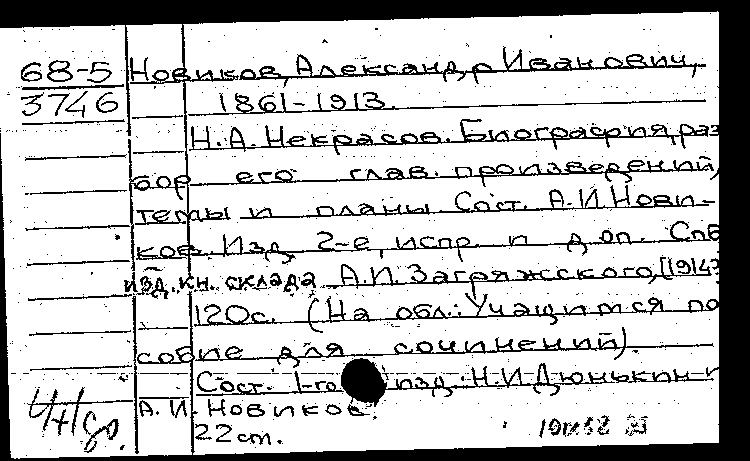 68-5 Новиков, Александр Иванович,
3746 1861-1913.
Н.А. Некрасов. Биография, раз
бор его глав. произведений,
темы и планы Сост. А.И. Нови-
ков. Изд. 2-е, испр. и доп. Спб
изд. кн. склада А.И. Загряжского, [1914?
120с. (На обл.: Учащимся по
собие для сочинений).
Сост. 1-го изд.: Н.И. Дюнькин и
А.И. Новиков.
22 см.